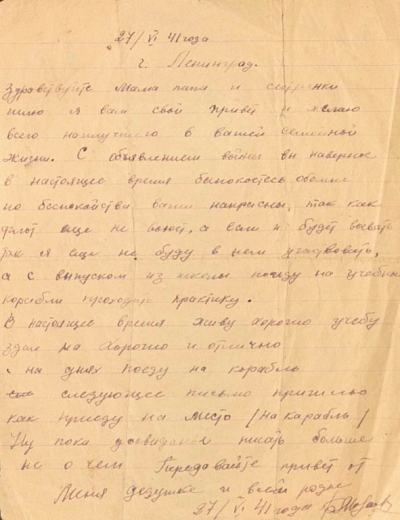 27/VI 41 года
г. Ленинград.
Здравствуйте Мама папа и сестренки
шлю я вам свой привет и желаю
всего наилучшего в вашей семейной
жизни. С объявлением войны вы наверное
в настоящее время беспокоетесь обо мне
но беспокойства ваши напрасны, так как
флот еще не воюет, а если и будет воевать
так я еще не буду в нем учавствовать,
а с выпуском из школы поеду на учебные
корабли проходить практику.
В настоящее время живу хорошо учебу
здал на хорошо и отлично
на днях поеду на корабль
следующее письмо пришлю
как приеду на место /на карабль/
Ну пока досвиданье писать больше
не о чем Передавайте привет от
меня дедушке и всей родне
27/VI 41 года